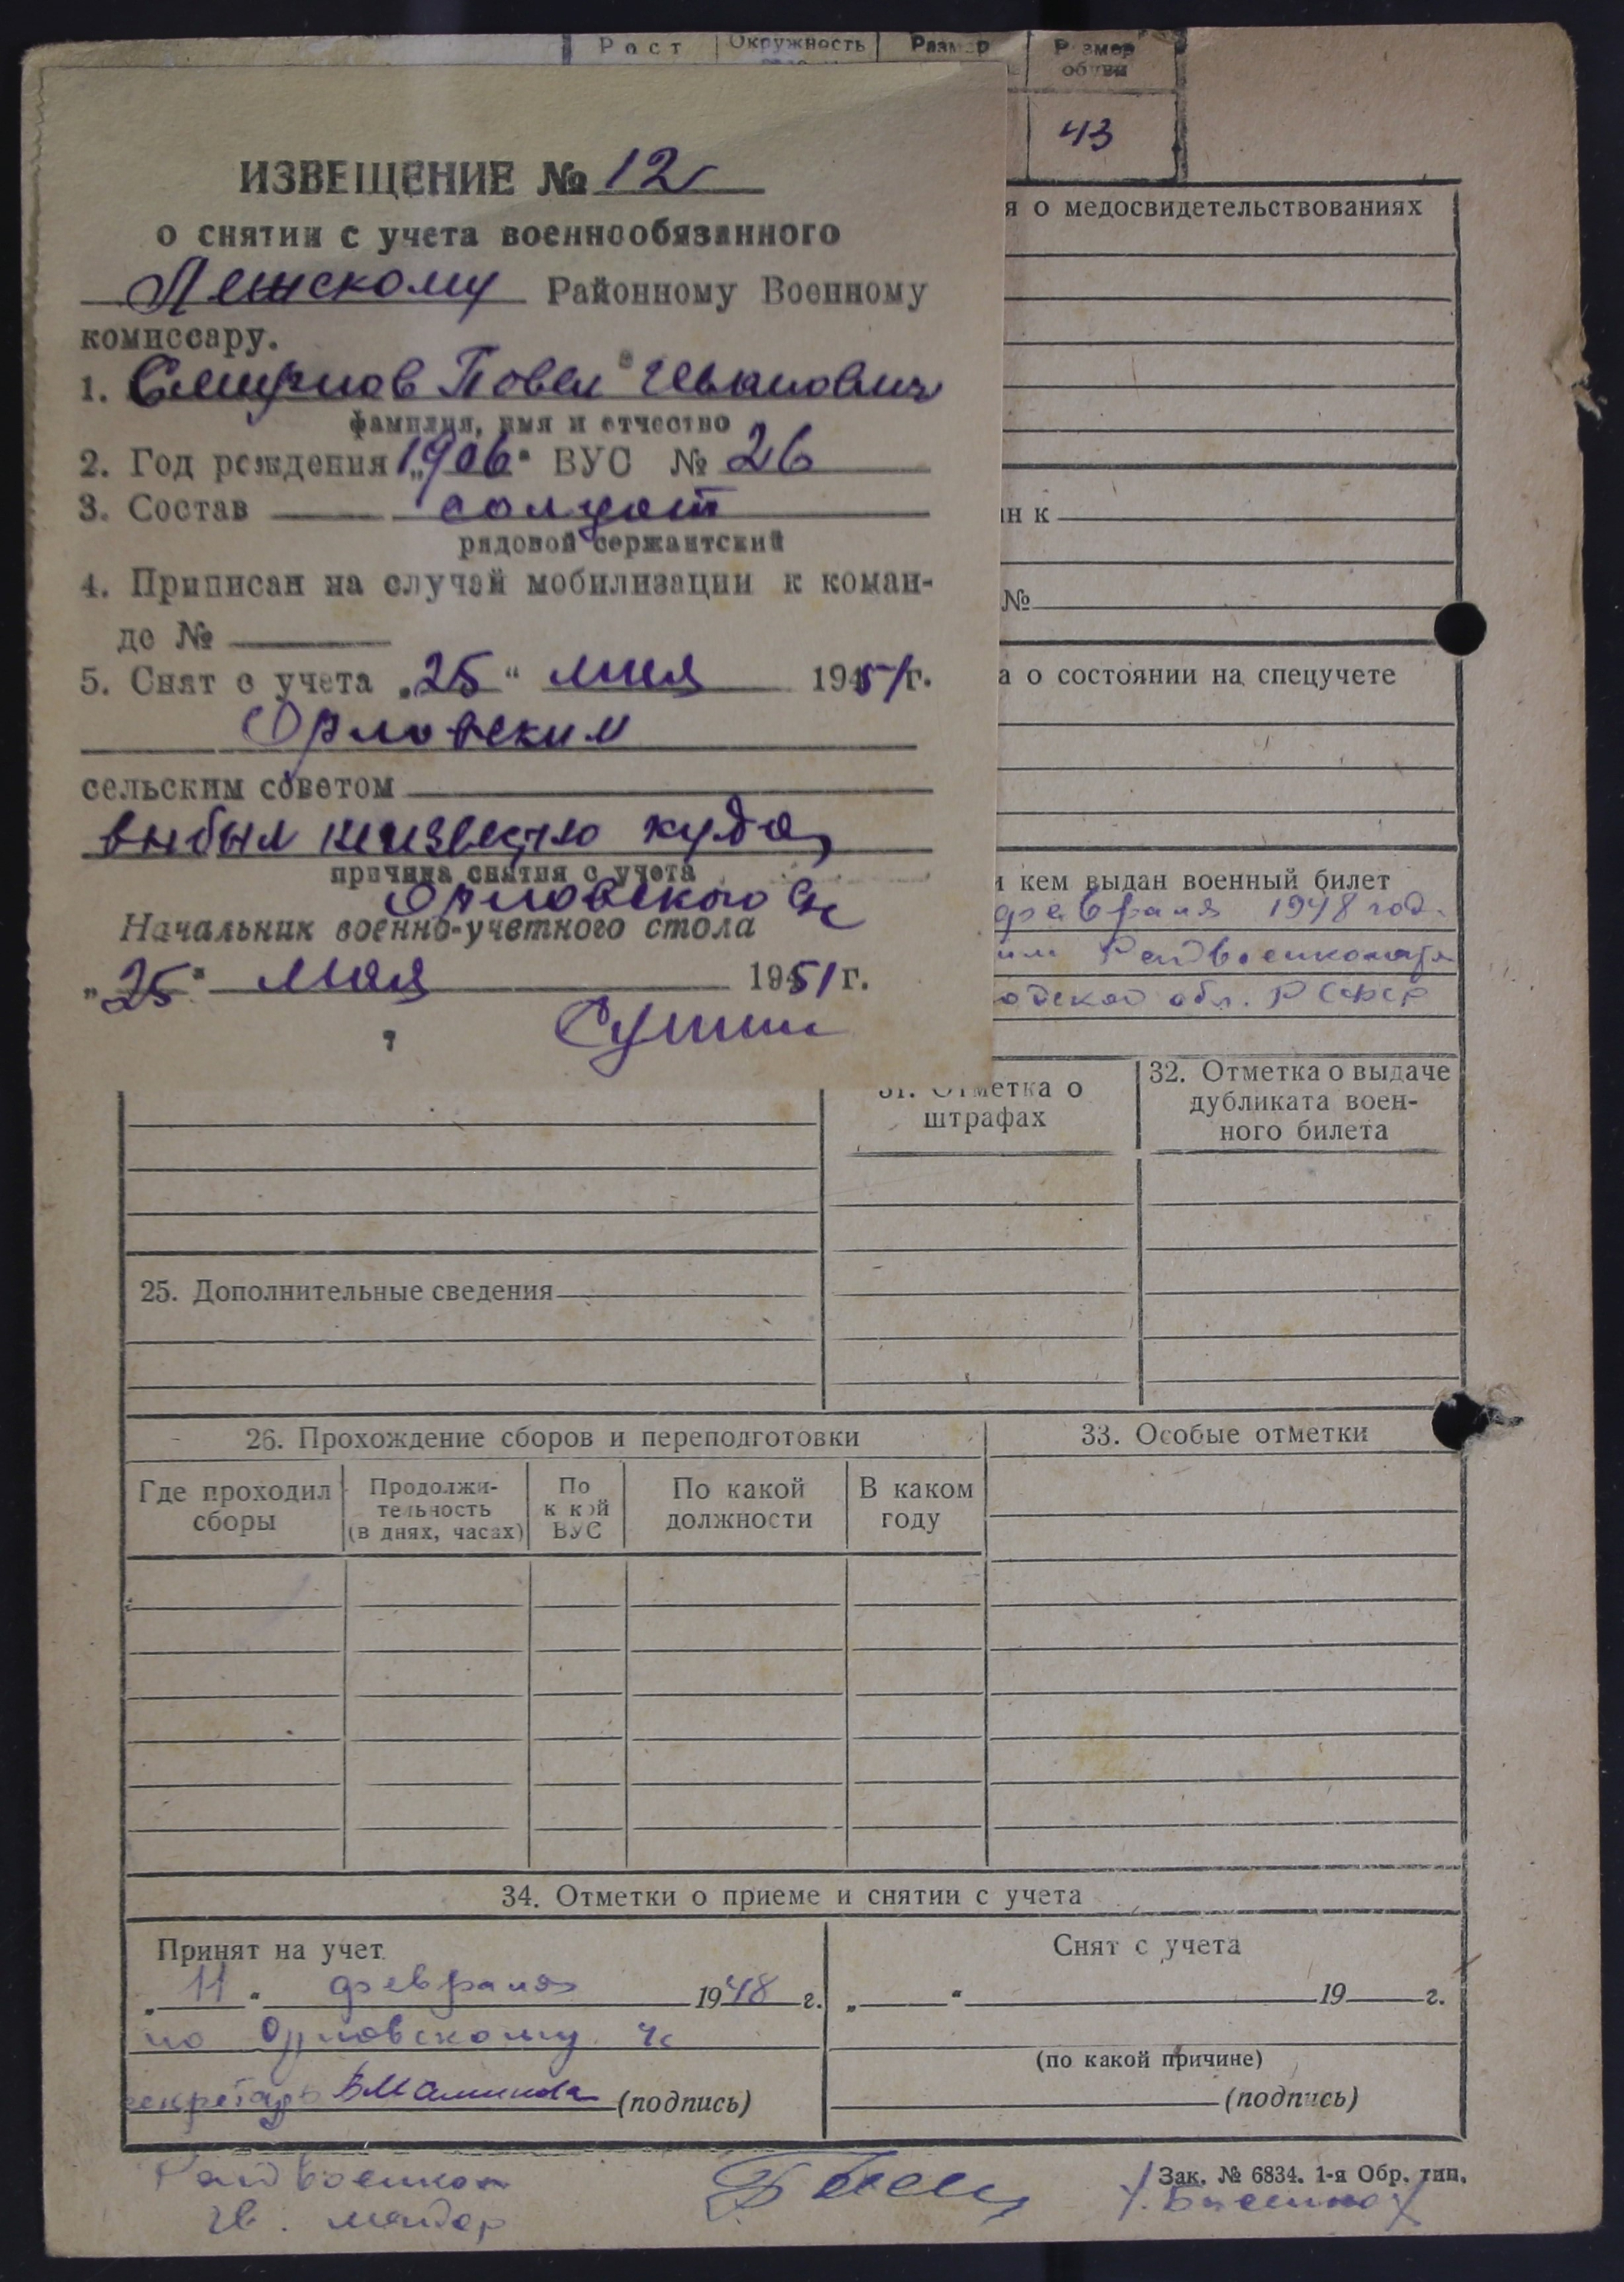 Рост Окружность Размер Размер обуви
43
ИЗВЕЩЕНИЕ № 12
о снятии с учета военнообязанного
Лежскому Районному Военному
комиссару.
1. Смирнов Повел Иванович
фамилия, имя и отчество
2. Год рождения „1906“ ВУС № 26
3. Состав солдат
рядовой сержантский
4. Приписан на случай мобилизации к коман-
де №
5. Снят с учета „25“ мая 1951г.
Орловским
сельским советом
выбыл неизвестно куда
причина снятия с учета
Орловского с/с
Начальник военно-учетного стола
„25“ мая 1951г.
я о медосвидетельствованиях
н к
№
а о состоянии на спецучете
и кем выдан военный билет
февраля 1948 год.
им Райвоенкомата
одской обл. РСФСР
31. Отметка о
штрафах
32. Отметка о выдаче
дубликата воен-
ного билета
25. Дополнительные сведения
26. Прохождение сборов и переподготовки
33. Особые отметки
Где проходил
сборы
Продолжи-
тельность
(в днях, часах)
По
какой
ВУС
По какой
должности
В каком
году
34. Отметки о приеме и снятии с учета
Принят на учет
„11“ февраля 1948 г.
по Орловскому с/с
секретарь (подпись)
Снят с учета
„ “ 19 г.
(по какой причине)
(подпись)
Зак. № 6834. 1-я Обр. тип.
Райвоенком
гв. майор